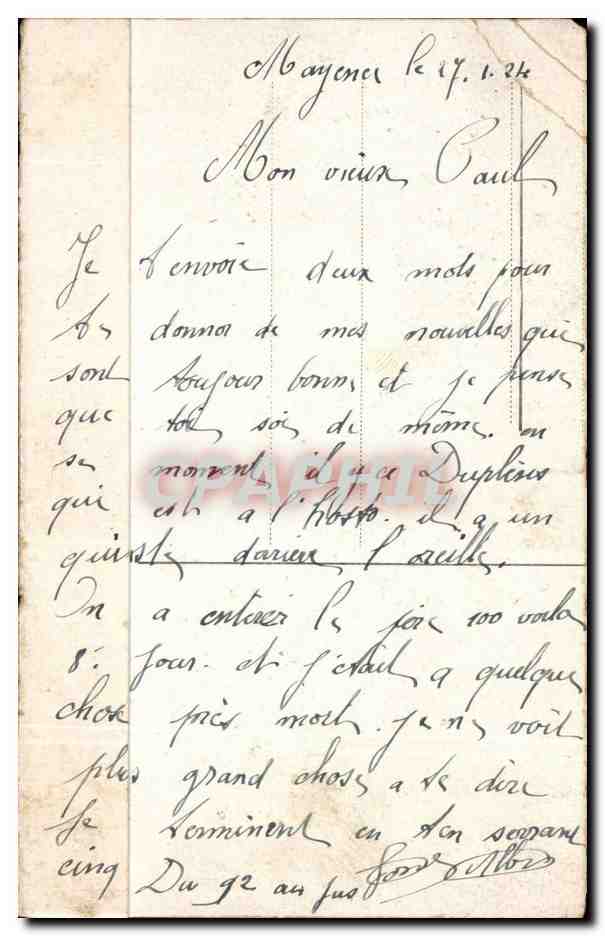 Mayenne le 27.1.24
Mon vieux Paul
Je t'envoie deux mots pour
te donner de mes nouvelles qui
sont toujour bonne et je pense
que toi soi de même. en
se moment il y a ce Duplènes
qui est a l'hosto. il a un
quiste dariere l'oreille.
On a enterer le père 100 voila
8. Jour. et j'était a quelque
chose près mort. je ne voit
plus grand chose a te dire
Je terminent en t'en serrant
cinq
Du 92 au jus
CPAPHIL